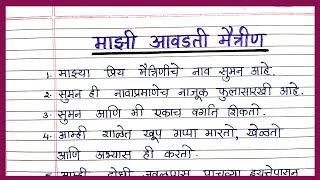 माझी आवडती मैत्रीण
1. माझ्या प्रिय मैत्रिणीचे नाव सुमन आहे.
2. सुमन ही नावाप्रमाणेच नाजूक फुलासारखी आहे.
3. सुमन आणि मी एकाच वर्गात शिकतो.
4. आम्ही शाळेत खूप गप्पा मारतो, खेळतो
आणि अभ्यास ही करतो.
5. आम्ही दोघी जवळपास पाचव्या इयत्तेपासून